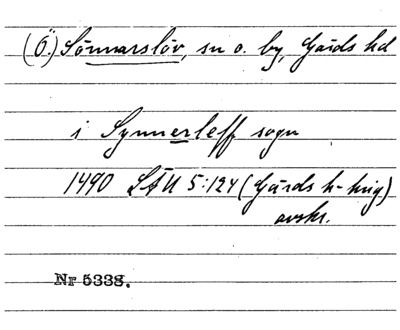 (Ö.) Sönnarslöv, sn o. by, Gärds hd
i Synnerleff sogn
1490 LÄU 5:124 (Gärds h-ting)
avskr.
Nr 5338.